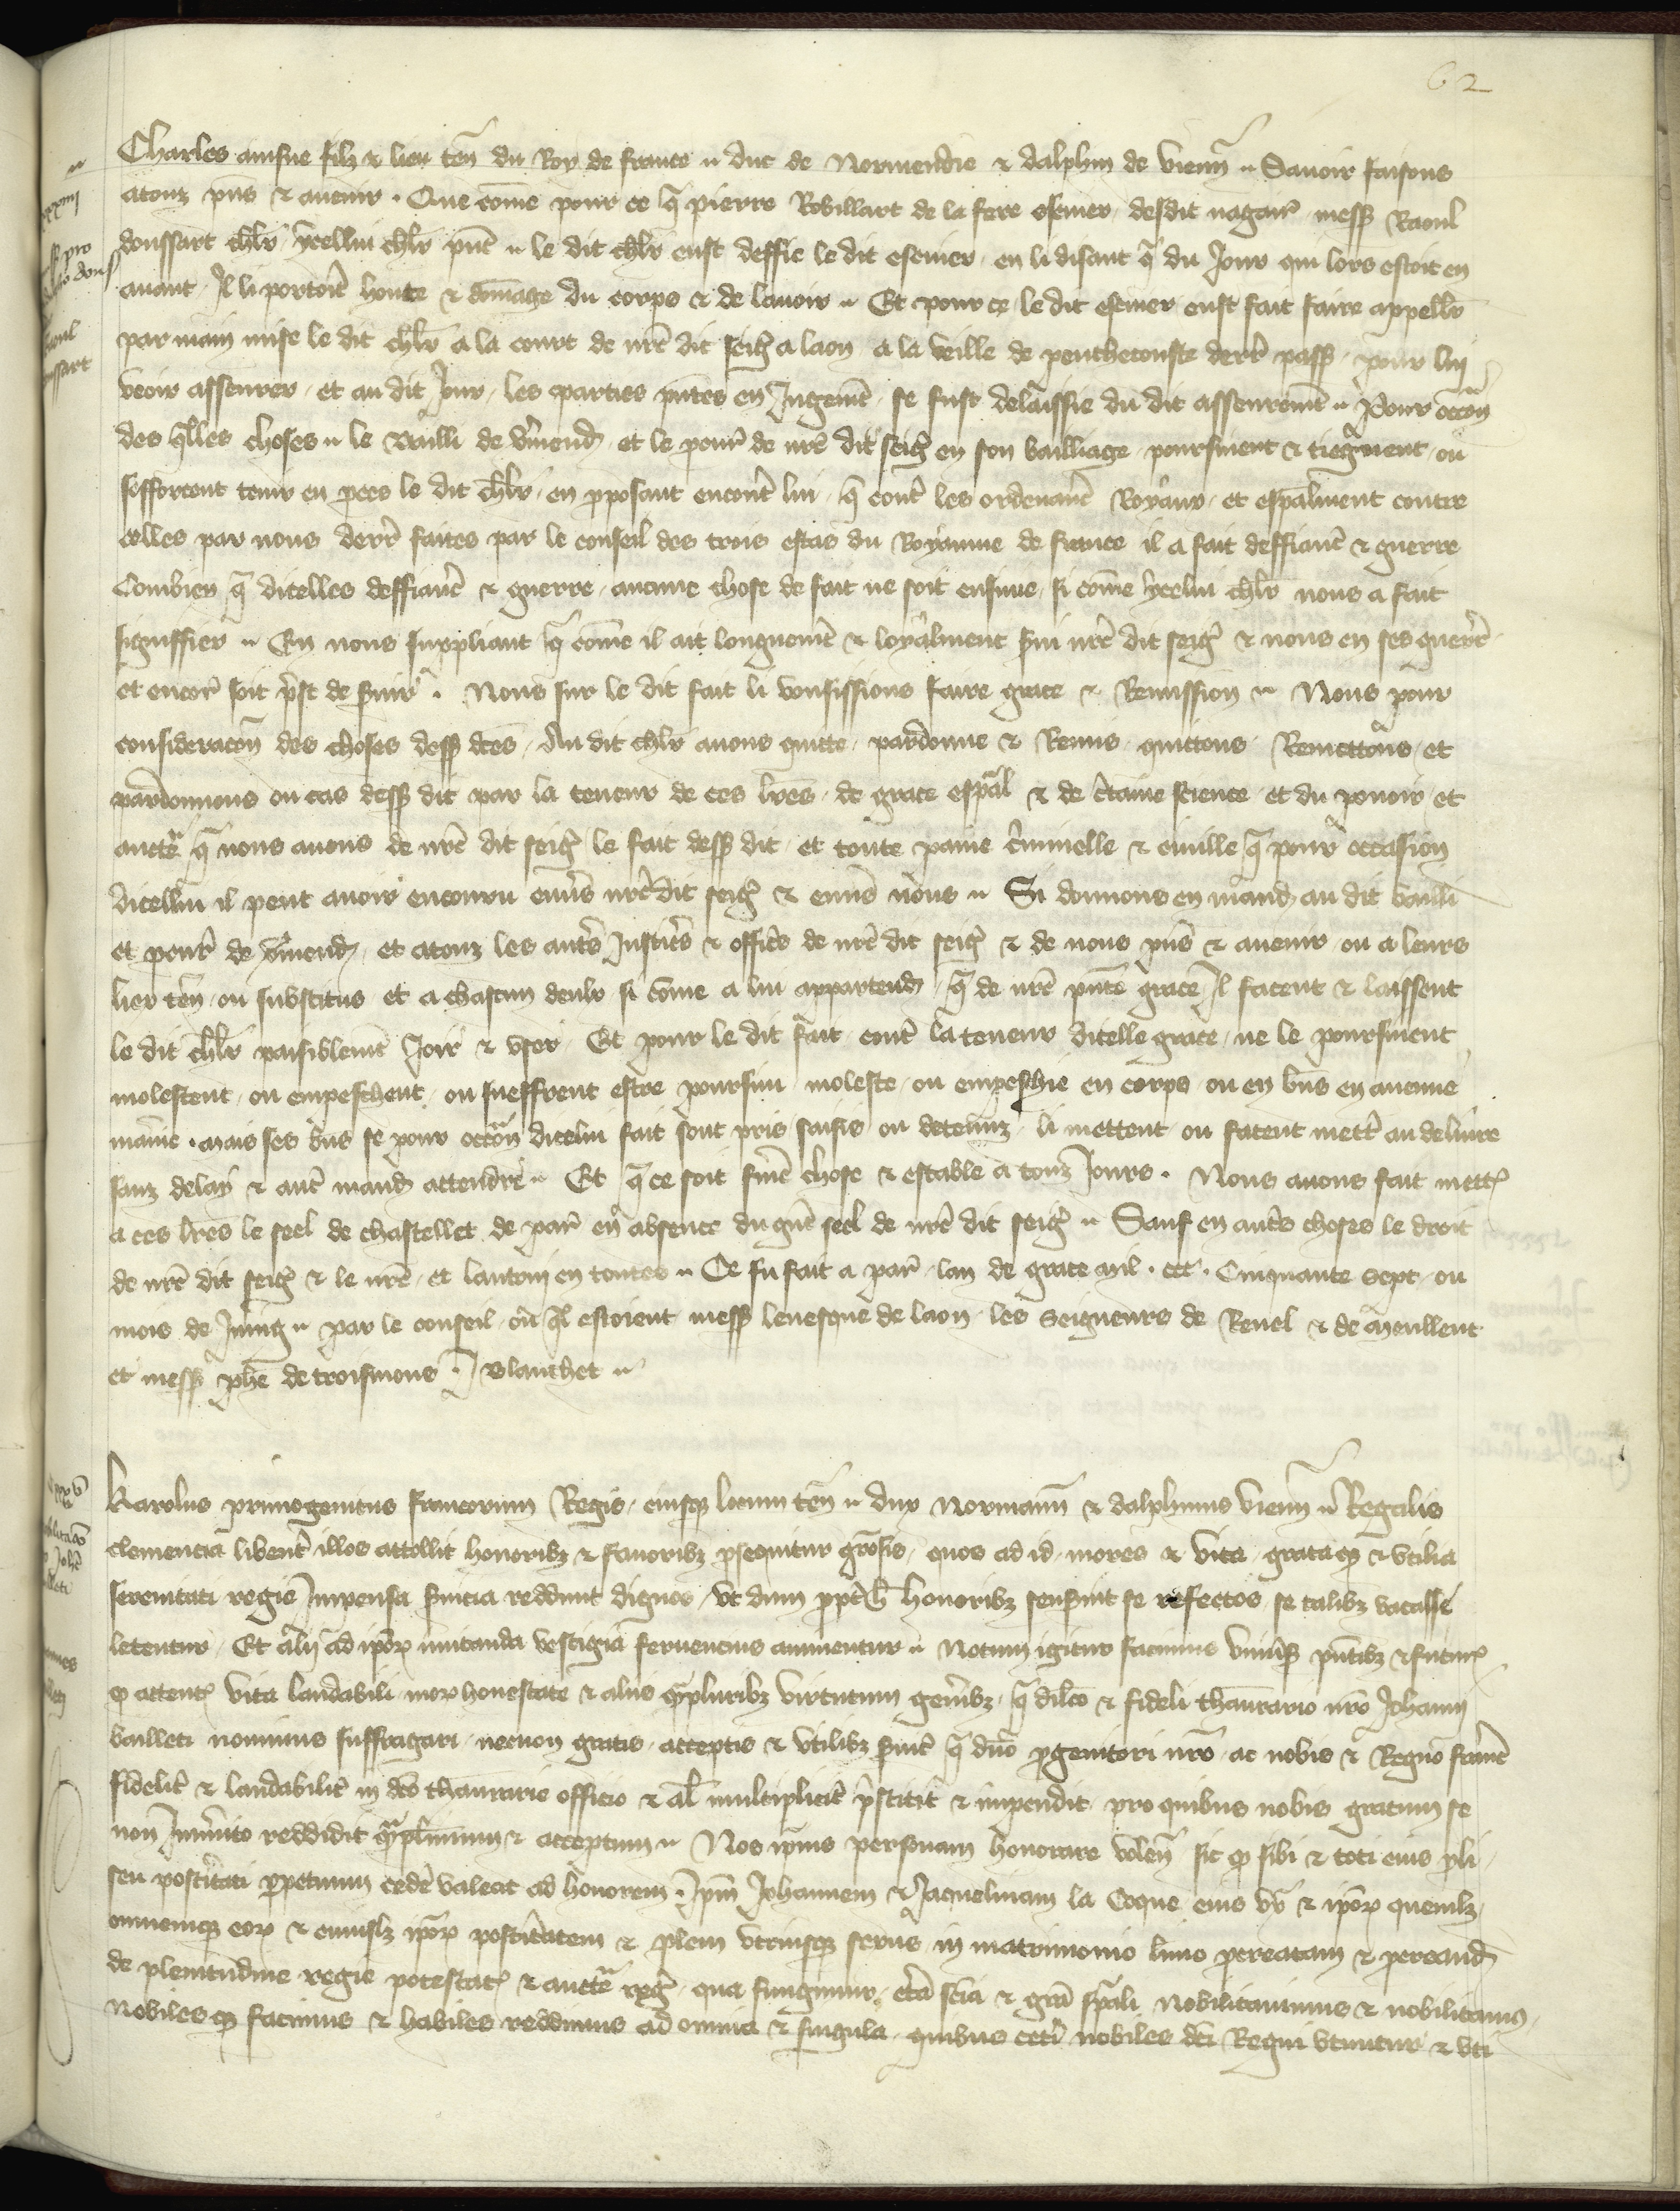 62
Charles ainsne filz & lieu ten̄ du Roy de france duc de Normendie & dalphin de vienn̄ Savoir faisons
atouz pn̄s & avenir . Que cōme pour ce q̄ pierre Robillart de la fere escuier desdit nagair̄ mess Raoul
doussart chlr̄ ycellui chlr̄ pn̄t le dit chlr̄ eust deffie le dit escuier en li disant q̄ du Jour qui lors estoit en
avant Il li portoit honte & dōmage du corps & de lavoir Et pour ce le dit escuier eust fait faire appeller
par main mise le dit chlr̄ a la court de nr̄e dit seigr̄ a laon a la veille de penthecouste derr̄ pass pour lui
veoir asseurer et au dit Jour les parties pn̄tes en Jugemt̄ se fust delaissie du dit asseuremt̄ Pour occon̄
des q̄lles choses le Bailli de v̄mend et le procur̄ de nr̄e dit seigr̄ en son bailliage poursuient & tiegnent ou
sefforcent tenir en p̄ces le dit chlr̄ en p̄posant encontr̄ lui q̄ contr̄ les ordenanc̄ Royaux et esp̄alment contre
celles par nous derr̄ faites par le conseil des trois estas du Royaume de france il a fait deffianc̄ & guerre
Combien q̄ dicelles deffianc̄ & guerre aucune chose de fait ne soit ensuive si cōme ycelui chlr̄ nous a fait
signiffier En nous suppliant q̄ cōme il ait longuemt̄ & loyalment s̄vi nr̄e dit seigr̄ & nous en ses guerr̄
et encor̄ soit p̄st de s̄vir . Nous sur le dit fait li voussissions faire grace & Remission Nous pour
consideracōn des choses dess dc̄es Au dit chlr̄ avons quitte pardonne & Remis quittons Remettons et
pardonnons ou cas dess dit par la teneur de ces lr̄es de grace esp̄al & de c̄taine science et du povoir et
auctē q̄ nous avons de nr̄e dit seigr̄ le fait dess dit et toute paine c̄minelle & civille q̄ pour occasion
dicellui il peut avoir encouru env̄s nr̄e dit seigr̄ & env̄s nous Si donnons en mand au dit bailli
et procur̄ de v̄mend et atouz les autr̄s Justic̄s & offic̄s de nr̄e dit seigr̄ & de nous pn̄s & avenir ou a leurs
lieu ten̄ ou substitus et a chascun deulx si cōme a lui appartend q̄ de nr̄e pn̄te grace Il facent & laissent
le dit chlr̄ paisiblemt̄ Joir & user Et pour le dit fait contr̄ la teneur dicelle grace ne le poursuient
molestent ou empeschent ou sueffrent estre poursui moleste ou empeschie en corps ou en biens en aucune
manie . mais ses bn̄s se pour occōn dicelui fait sont pris saisis ou detenuz li mettent ou facent mettr̄ au delivre
sanz delay & autr̄ mand attendre Et q̄ ce soit ferme chose & estable a touz Jours . Nous avons fait mettr̄
a ces lr̄es le seel de chastellet de par̄ en absence du grāt seel de nr̄e dit seigr̄ Sauf en autr̄s choses le droit
de nr̄e dit seigr̄ & le nr̄e et lautrui en toutes Ce fu fait a par̄ lan de grace mil . ccc . Cinquante sept ou
mois de Juing par le conseil ou q̄l estoient mess levesque de laon les seigneurs de Revel & de meullent
et mess phē de troismons . Blanchet
Karolus primogenitus francorum Regis eiusque locum ten̄ dux Normann̄ & dalphinus vienn̄ Regalis
clemencia libentr̄ illos attollit honoribz & favoribz p̄sequitur grōsis quos ad id mores & vita grataq̄ & utilia
serenitati regie Impensa s̄vicia reddunt dignos ut dum p̄pt̄ h̄ honoribz senserint se refectos se talibz vacasse
letentur Et alij ad ip̄or̄ imitanda vestigia ferventius animentur Notum igitur facimus univ̄sis pn̄tibz & futur̄
q̄ attent̄ vita laudabili mor̄ honestate & aliis q̄mpluribz virtutum gen̄ibz q̄ dilc̄o & fideli thaurario nr̄o Johann̄
bailleti novimus suffragari necnon gratis acceptis & utilibz s̄vic̄ q̄ dn̄o p̄genitori nr̄o ac nobis & Regno franc̄
fidelit̄ & laudabilit̄ in dc̄o thaurarie officio & al̄ multiplicit̄ p̄stitit & impendit pro quibus nobis gratum se
non Im̄ito reddidit q̄mplurimum & acceptum Nos ip̄ius personam honorare volen̄ sic q̄ sibi & toti eius p̄li
seu post̄itati p̄petuum ced̄e valeat ad honorem . Ip̄m Johannem & Jaquelinam la Coque eius ux̄ & ip̄or̄ quemlz
omnemque eor̄ & cuiuslz ip̄or̄ post̄itatem & p̄lem utriusque sexus in matrimonio l̄imo p̄creatam & p̄creand
de plenitudine regie potestat̄ & auctē reḡ qua fungimur c̄ta scīa & grā sp̄ali nobilitavimus & nobilitamus
nobiles q̄ facimus & habiles reddimus ad omnia & singula quibus cet̄i nobiles dc̄i Regni utuntur & uti